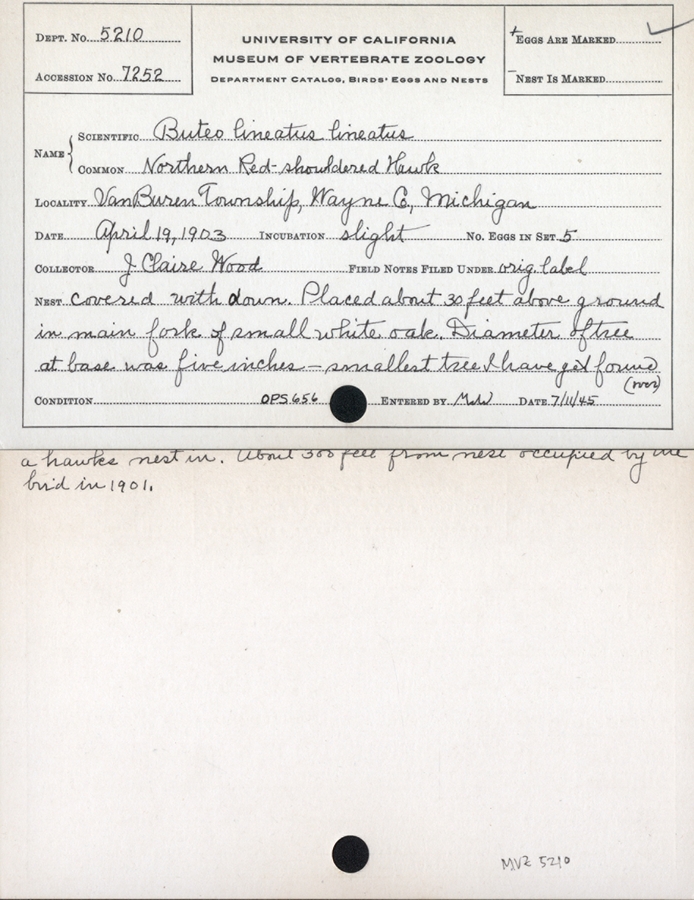 DEPT. NO. 5210
ACCESSION NO. 7252
UNIVERSITY OF CALIFORNIA
MUSEUM OF VERTEBRATE ZOOLOGY
DEPARTMENT CATALOG, BIRDS' EGGS AND NESTS
+EGGS ARE MARKED ✓
-NEST IS MARKED
NAME { SCIENTIFIC Buteo lineatus lineatus
COMMON Northern Red-shouldered Hawk
LOCALITY Van Buren Township, Wayne Co., Michigan
DATE April 19, 1903 INCUBATION slight NO. EGGS IN SET 5
COLLECTOR J. Claire Wood FIELD NOTES FILED UNDER orig. label
NEST covered with down. Placed about 30 feet above ground
in main fork of small white oak. Diameter of tree
at base was five inches – smallest tree I have yet found
(over)
CONDITION OPS 656 ENTERED BY DATE 7/11/45
a hawks nest in. About 300 feet from nest occupied by the
bird in 1901.
MVZ 5210